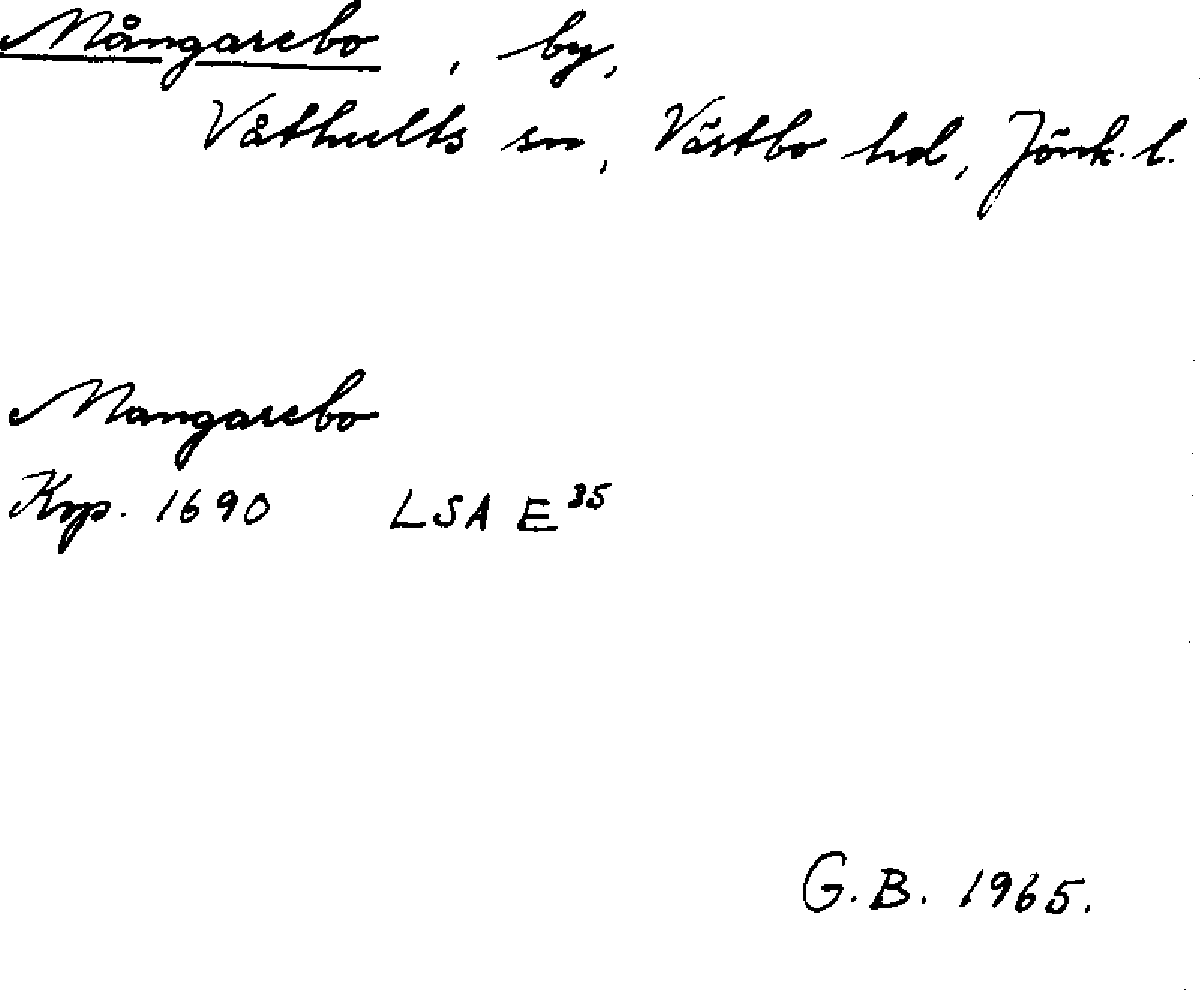 Mångarebo, by,
Våthults sn, Västbo hd, Jönk. l.
Mangarebo
Krp. 1690 LSA E³⁵
G.B. 1965.